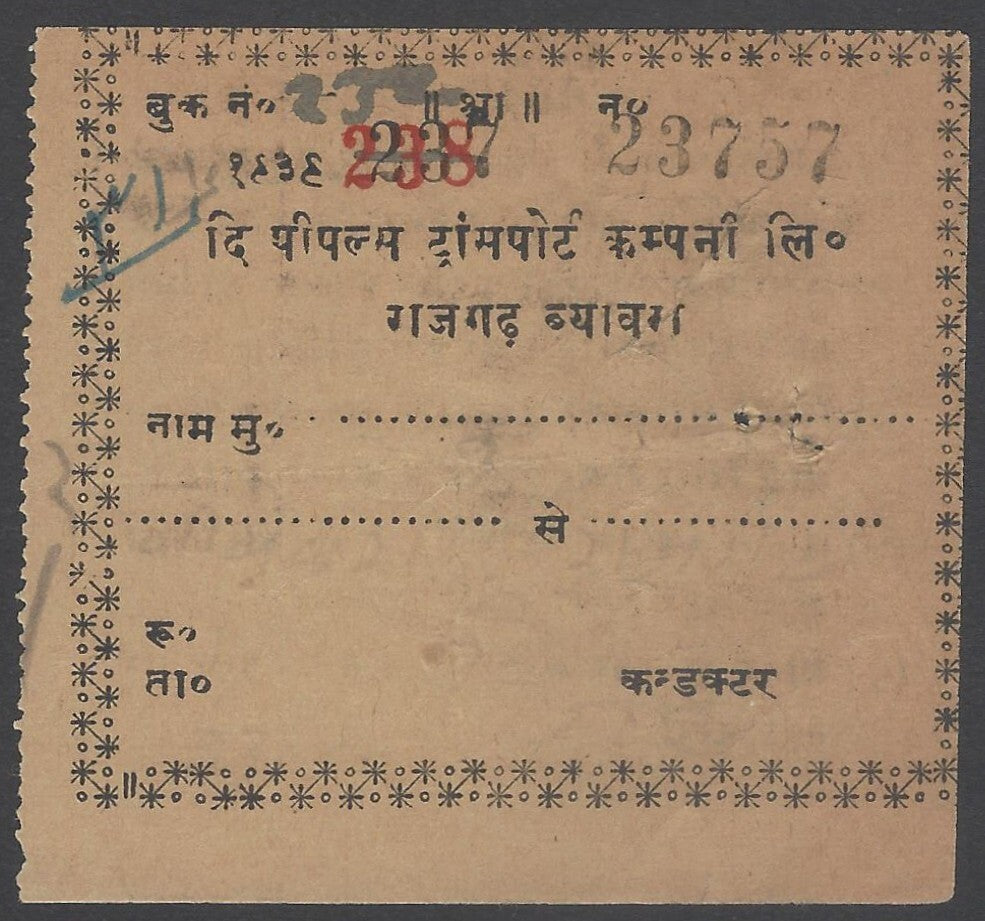 बुक नं० ॥ श्री ॥ न० 23757
१९३९ 238 237
दि पीपल्स ट्रांसपोर्ट कम्पनी लि०
राजगढ़ ब्यावरा
नाम मु० ........................
........................ से ........................
रू०
ता० कन्डक्टर